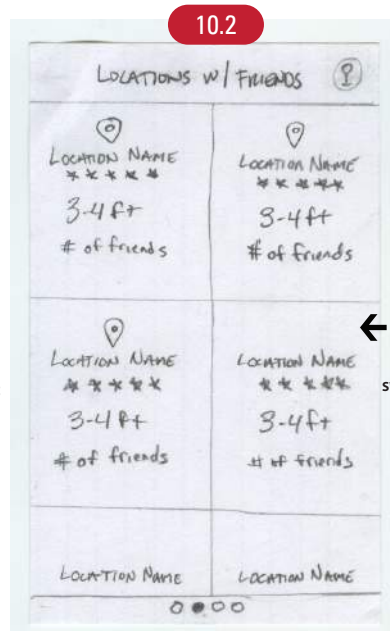 10.2
LOCATIONS W/ FRIENDS
LOCATION NAME
*****
3-4 ft
# of friends
LOCATION NAME
*****
3-4 ft
# of friends
LOCATION NAME
*****
3-4 ft
# of friends
LOCATION NAME
*****
3-4 ft
# of friends
LOCATION NAME
LOCATION NAME
s